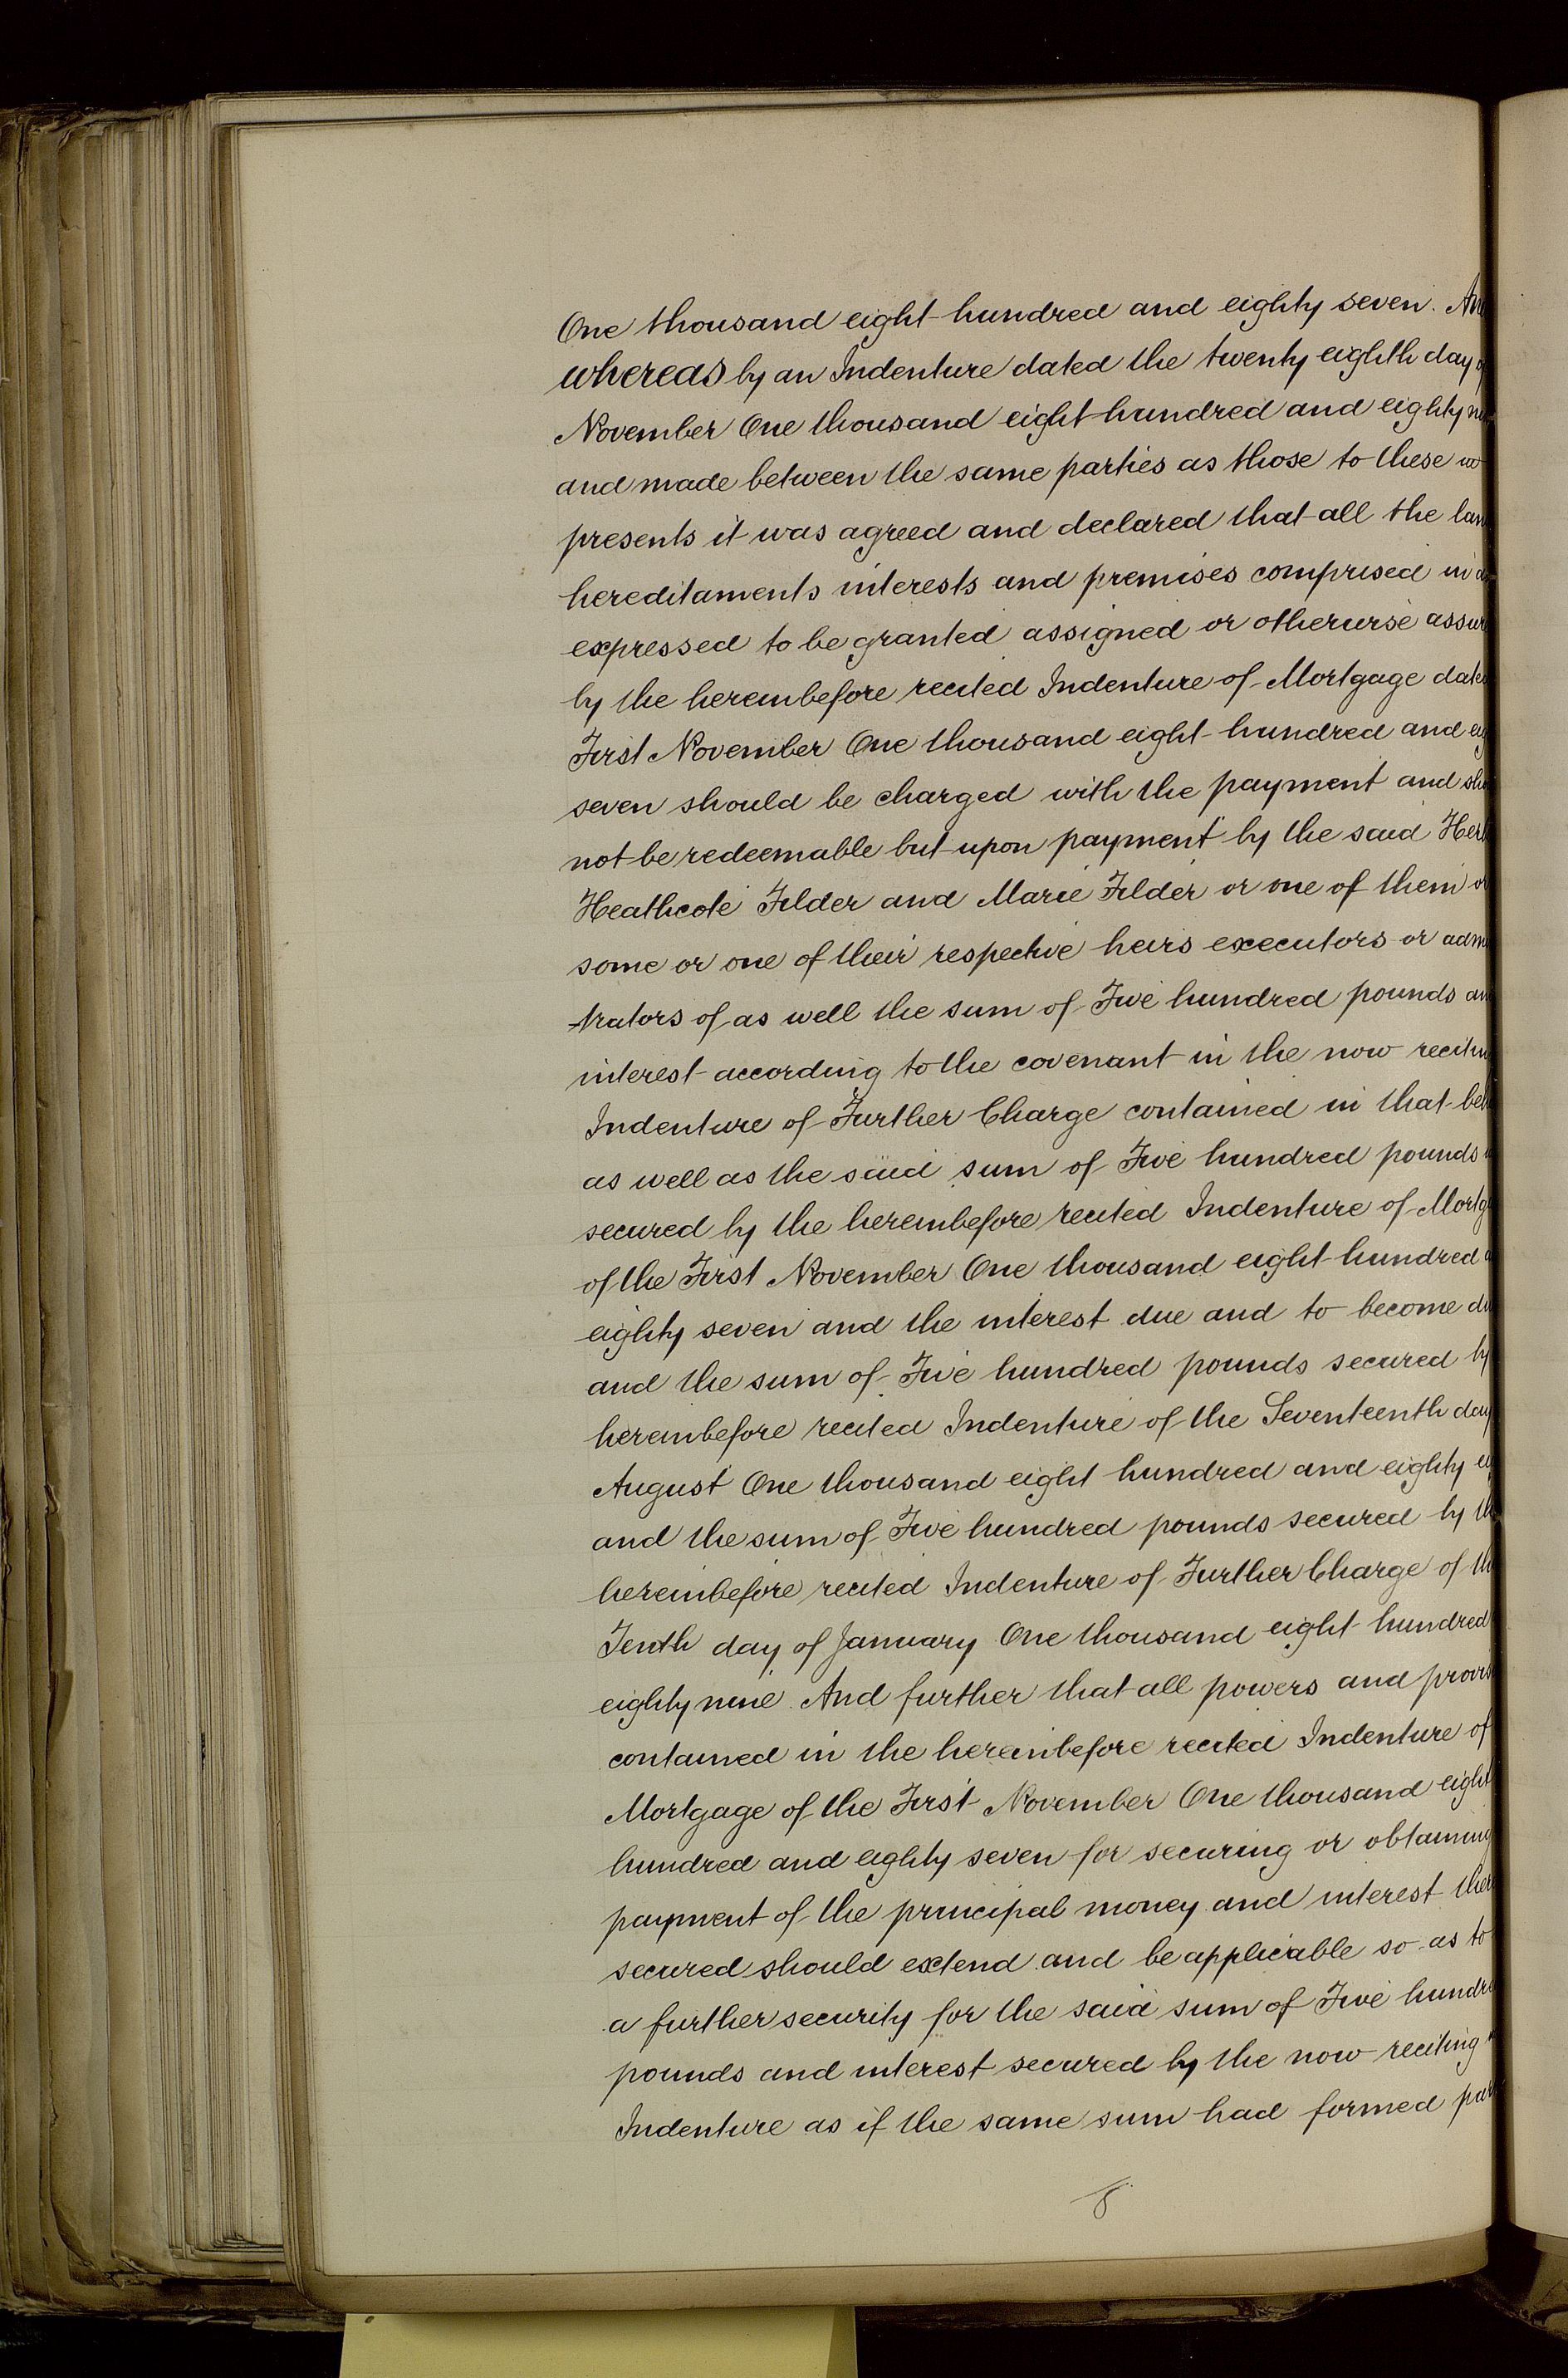 One thousand eight hundred and eighty seven. An
whereas by an Indenture dated the twenty eighth day
November One thousand eight hundred and eighty
and made between the same parties as those to these
presents it was agreed and declared that all the lan
hereditaments interests and premises comprised in
expressed to be granted assigned or otherwise assur
by the hereinbefore recited Indenture of Mortgage date
First November One thousand eight hundred and eig
seven should be charged with the payment and sho
not be redeemable but upon payment by the said Herb
Heathcote Filder and Marie Filder or one of them or
some or one of their respective heirs executors or admi
trators of as well the sum of Five hundred pounds an
interest according to the covenant in the now recitin
Indenture of Further Charge contained in that beh
as well as the said sum of Five hundred pounds
secured by the hereinbefore recited Indenture of Mortg
of the First November One thousand eight hundred a
eighty seven and the interest due and to become du
and the sum of Five hundred pounds secured by
hereinbefore recited Indenture of the Seventeenth day
August One thousand eight hundred and eighty ei
and the sum of Five hundred pounds secured by th
hereinbefore recited Indenture of Further Charge of th
Tenth day of January One thousand eight hundred
eighty nine. And further that all powers and provis
contained in the hereinbefore recited Indenture of
Mortgage of the First November One thousand eight
hundred and eighty seven for securing or obtaining
payment of the principal money and interest ther
secured should extend and be applicable so as to
a further security for the said sum of Five hundre
pounds and interest secured by the now reciting
Indenture as if the same sum had formed par
8